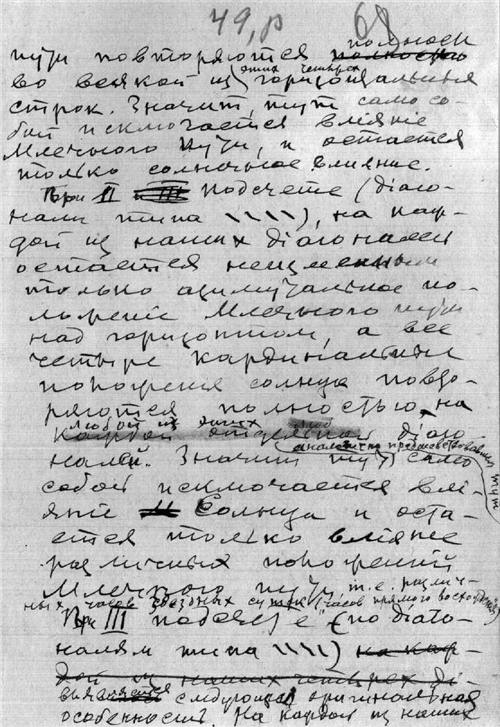 49, р 68
полностью
пути повторяются полностью
этих четырех
во всякой из горизонтальных
строк. Значит, тут само со-
бой исключается влiянiе
Млечного Пути, и остается
только солнечное влiянiе.
При II и III подсчете (дiаго-
нали типа \\\\), на каж-
дой из наших дiагоналей
остается неизменным
только азимутальное по-
ложенiе Млечного пути
над горизонтом, а все
четыре кардинальныя
положения солнца повто-
ряются полностью на
любой из этих
каждой отдельной дiаго-
(аналогично предшествовавшему)
налей. Значит тут само
тут
собой исключается влi-
янiе Солнца и оста-
ется только влiянiе
различных положений
Млечного пути, т.е. различ-
ных часов звездных суток (часов прямого восхождения)
При III подсчете (по дiаго-
налям типа \\\\) на каж-
дой из наших четырех дi-
выявляется следующая оригинальная
особенность. На каждой из наших